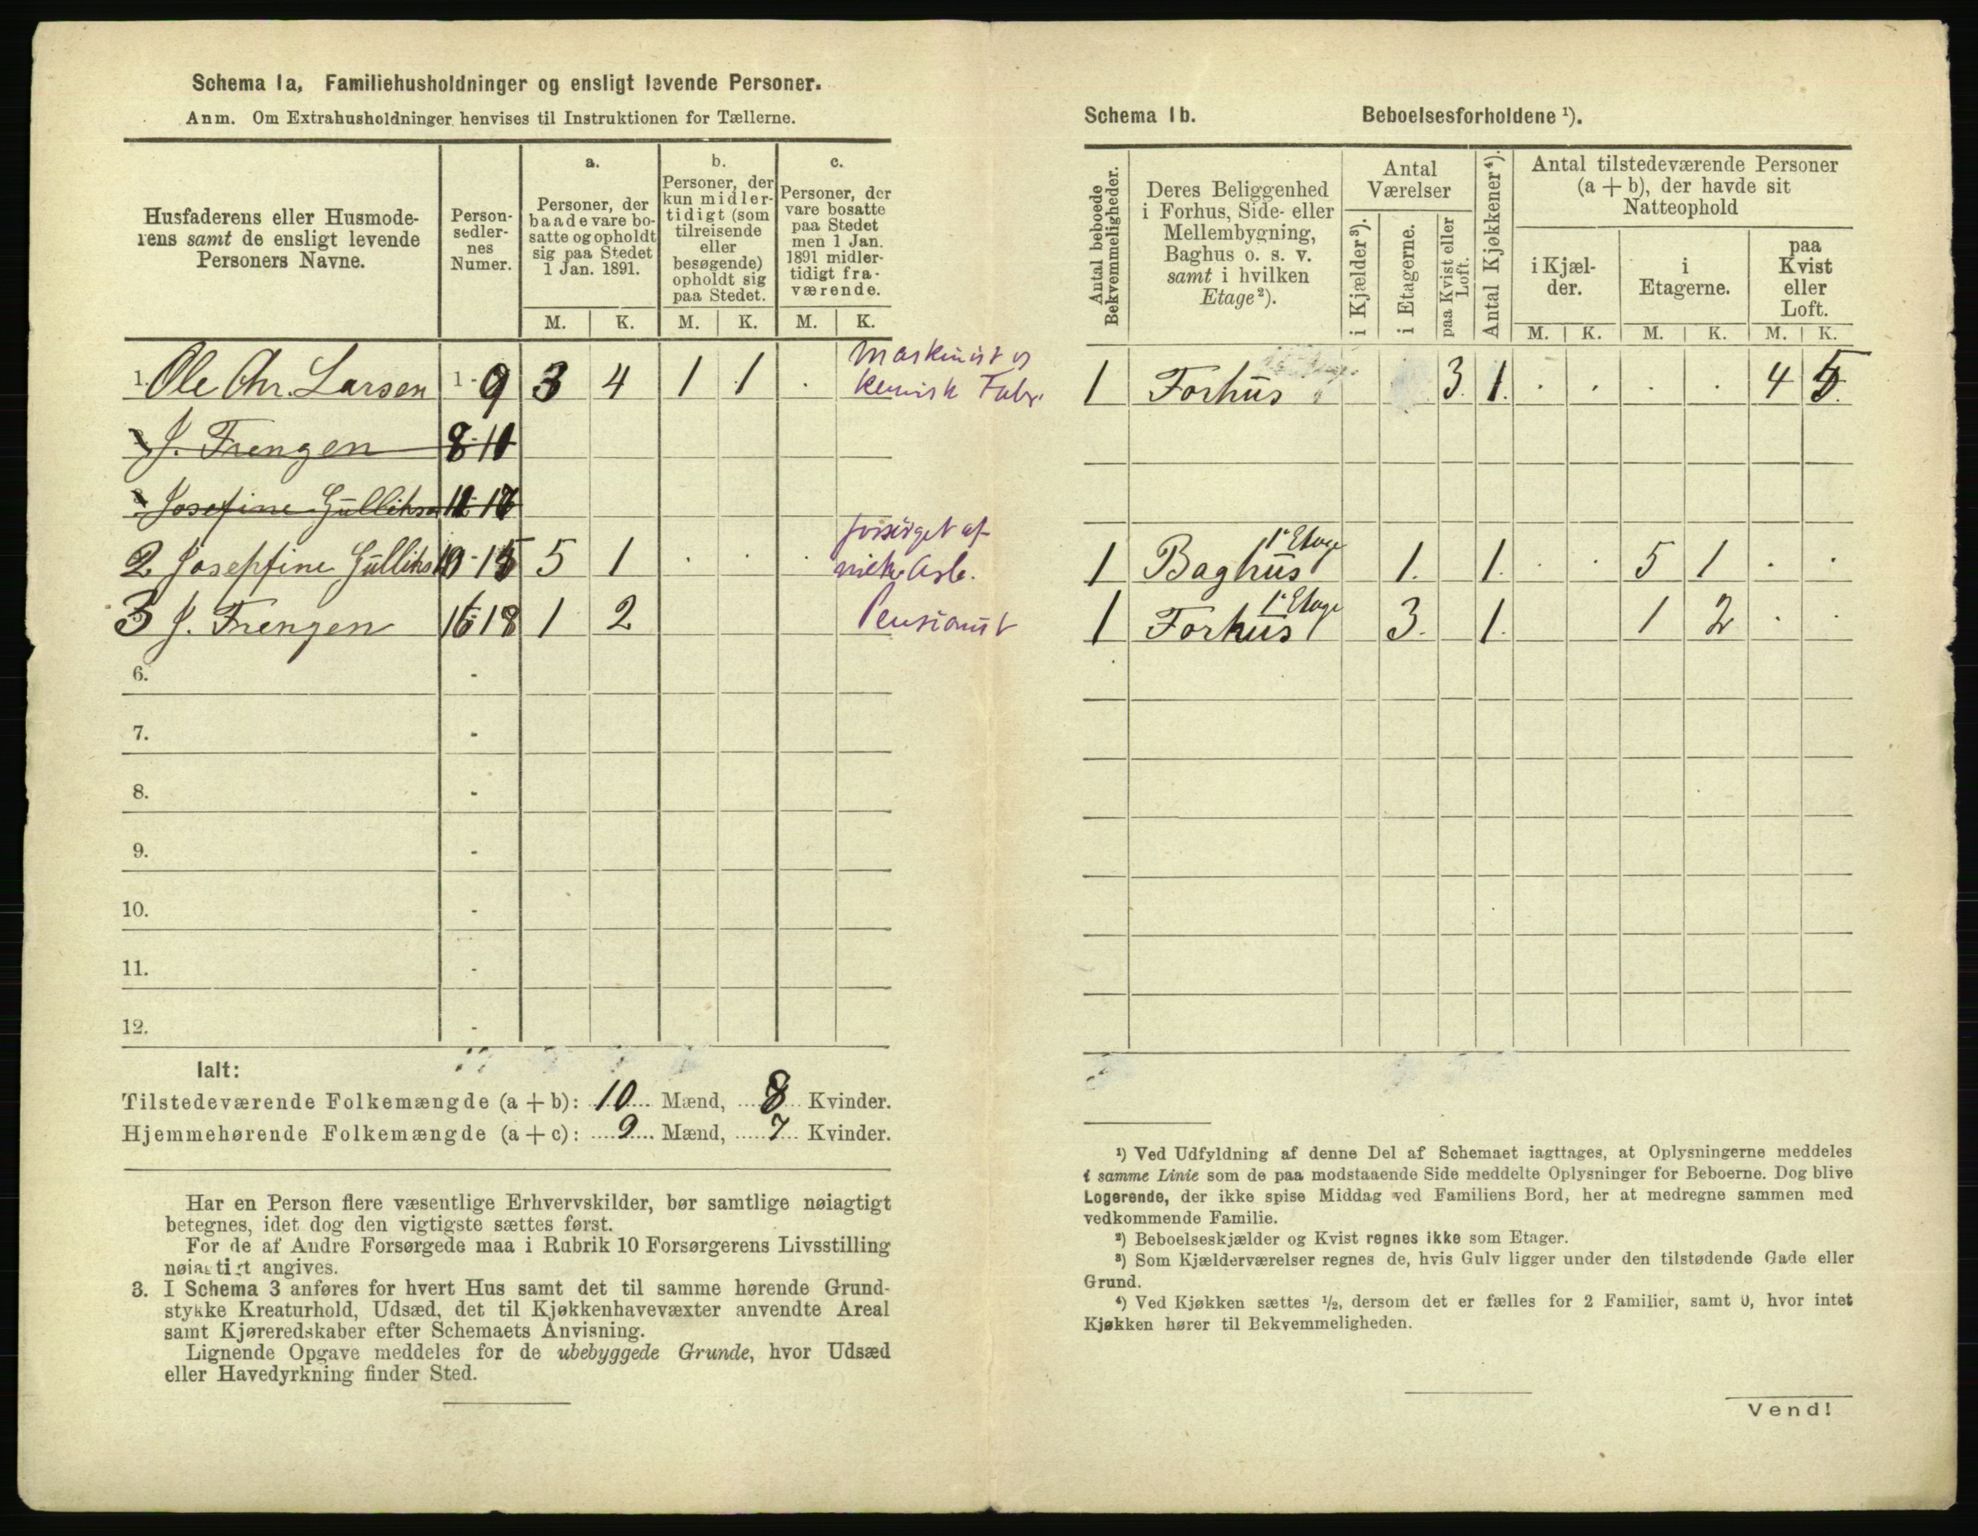 Schema 1a, Familiehusholdninger og ensligt levende Personer.
Anm. Om Extrahusholdninger henvises til Instruktionen for Tællerne.
Husfaderens eller Husmoderens samt de ensligt levende Personers Navne.
Personsedlernes Numer.
a. Personer, der baade vare bosatte og opholdt sig paa Stedet 1 Jan. 1891.
b. Personer, der kun midlertidigt (som tilreisende eller besøgende) opholdt sig paa Stedet.
c. Personer, der vare bosatte paa Stedet men 1 Jan. 1891 midlertidigt fraværende.
M. K. M. K. M. K.
1. Ole Chr. Larsen 1-9 3 4 1 1 . Maskinist v kemisk Fabr.
J. Frengen 8-11
Josefine Gulliks 11-17
2 Josephine Gulliks 10-15 5 1 . . forsørget af
3 J. Frengen 16-18 1 2 Pensionist
6. -
7. -
8. -
9. -
10. -
11. -
12. -
Ialt:
Tilstedeværende Folkemængde (a + b): 10 Mænd, 8 Kvinder.
Hjemmehørende Folkemængde (a + c): 9 Mænd, 7 Kvinder.
Har en Person flere væsentlige Erhvervskilder, bør samtlige nøiagtigt
betegnes, idet dog den vigtigste sættes først.
For de af Andre Forsørgede maa i Rubrik 10 Forsørgerens Livsstilling
nøiagtigt angives.
3. I Schema 3 anføres for hvert Hus samt det til samme hørende Grund-
stykke Kreaturhold, Udsæd, det til Kjøkkenhavevæxter anvendte Areal
samt Kjøreredskaber efter Schemaets Anvisning.
Lignende Opgave meddeles for de ubebyggede Grunde, hvor Udsæd
eller Havedyrkning finder Sted.
Schema 1b. Beboelsesforholdene ¹).
Antal beboede Bekvemmeligheder.
Deres Beliggenhed i Forhus, Side- eller Mellembygning, Baghus o. s. v. samt i hvilken Etage²).
Antal Værelser
i Kjælder³).
i Etagerne.
paa Kvist eller Loft.
Antal Kjøkkener⁴).
Antal tilstedeværende Personer (a + b), der havde sit Natteophold
i Kjælder.
i Etagerne.
paa Kvist eller Loft.
M. K. M. K. M. K.
1 Forhus 3. 1. . . . . 4 5.
1 Baghus 1ˢ Etage 1. 1. . . 5 1 . .
1 Forhus 1ˢ Etage 3. 1. 1 2 . .
¹) Ved Udfyldning af denne Del af Schemaet iagttages, at Oplysningerne meddeles
i samme Linie som de paa modstaaende Side meddelte Oplysninger for Beboerne. Dog blive
Logerende, der ikke spise Middag ved Familiens Bord, her at medregne sammen med
vedkommende Familie.
²) Beboelseskjælder og Kvist regnes ikke som Etager.
³) Som Kjælderværelser regnes de, hvis Gulv ligger under den tilstødende Gade eller
Grund.
⁴) Ved Kjøkken sættes ½, dersom det er fælles for 2 Familier, samt 0, hvor intet
Kjøkken hører til Bekvemmeligheden.
Vend!